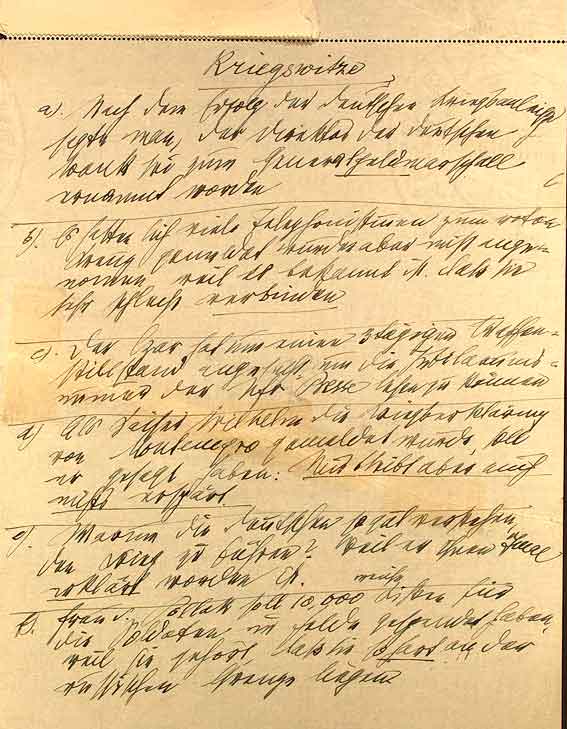 Kriegswitze
a). Nach dem Erfolg der deutschen Kriegsanleihe
sagte man, der Direktor der deutschen
Bank sei zum Generalfeldmarschall
ernannt worden
b). Es hatten sich viele Telephonistinen zum roten
Kreuz gemeldet wurden aber nicht ange-
nomen, weil es bekannt ist, dass sie
sehr schlecht verbinden
c). Der Czar hat um einen 3 tägigen Waffen-
stillstand angesucht um die
nummer der Presse lesen zu können
d) Als Kaiser Wilhelm die Kriegserklärung
von Montenegro gemeldet wurde, soll
er gesagt haben: Mir bleibt aber auch
nichts erspart.
e). Warum die Deutschen so gut verstehen
den Krieg zu führen? Weil er ihnen
erklärt worden ist.
f). Frau soll 10,000 für
die Soldaten im Felde gespendet haben,
weil sie gehört dass sie scharf an der
russischen Grenze liegen